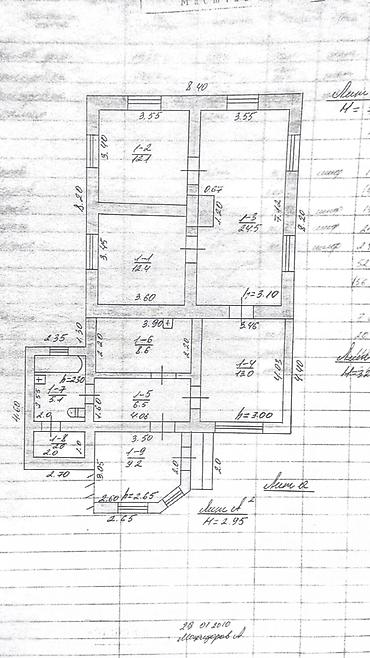 8.40
Лит
H=
3.55
3.55
3.40
1-2
12.1
8.20
0.67
1.20
1-3
24.5
7.12
8.20
3.45
1-1
12.4
3.60
h=3.10
3.46
3.90
1.30
2.20
1-6
8.6
2.20
1-4
13.0
4.03
4.40
2.35
h=2.30
1-7
5.1
3.55
4.60
2.0
1-5
6.5
1.60
4.06
h=3.00
1-8
2.0
2.0
1.0
3.50
1-9
9.2
3.05
2.0
2.0
2.70
2.60
h=2.65
2.65
Лит А²
H=2.95
28 01 2010